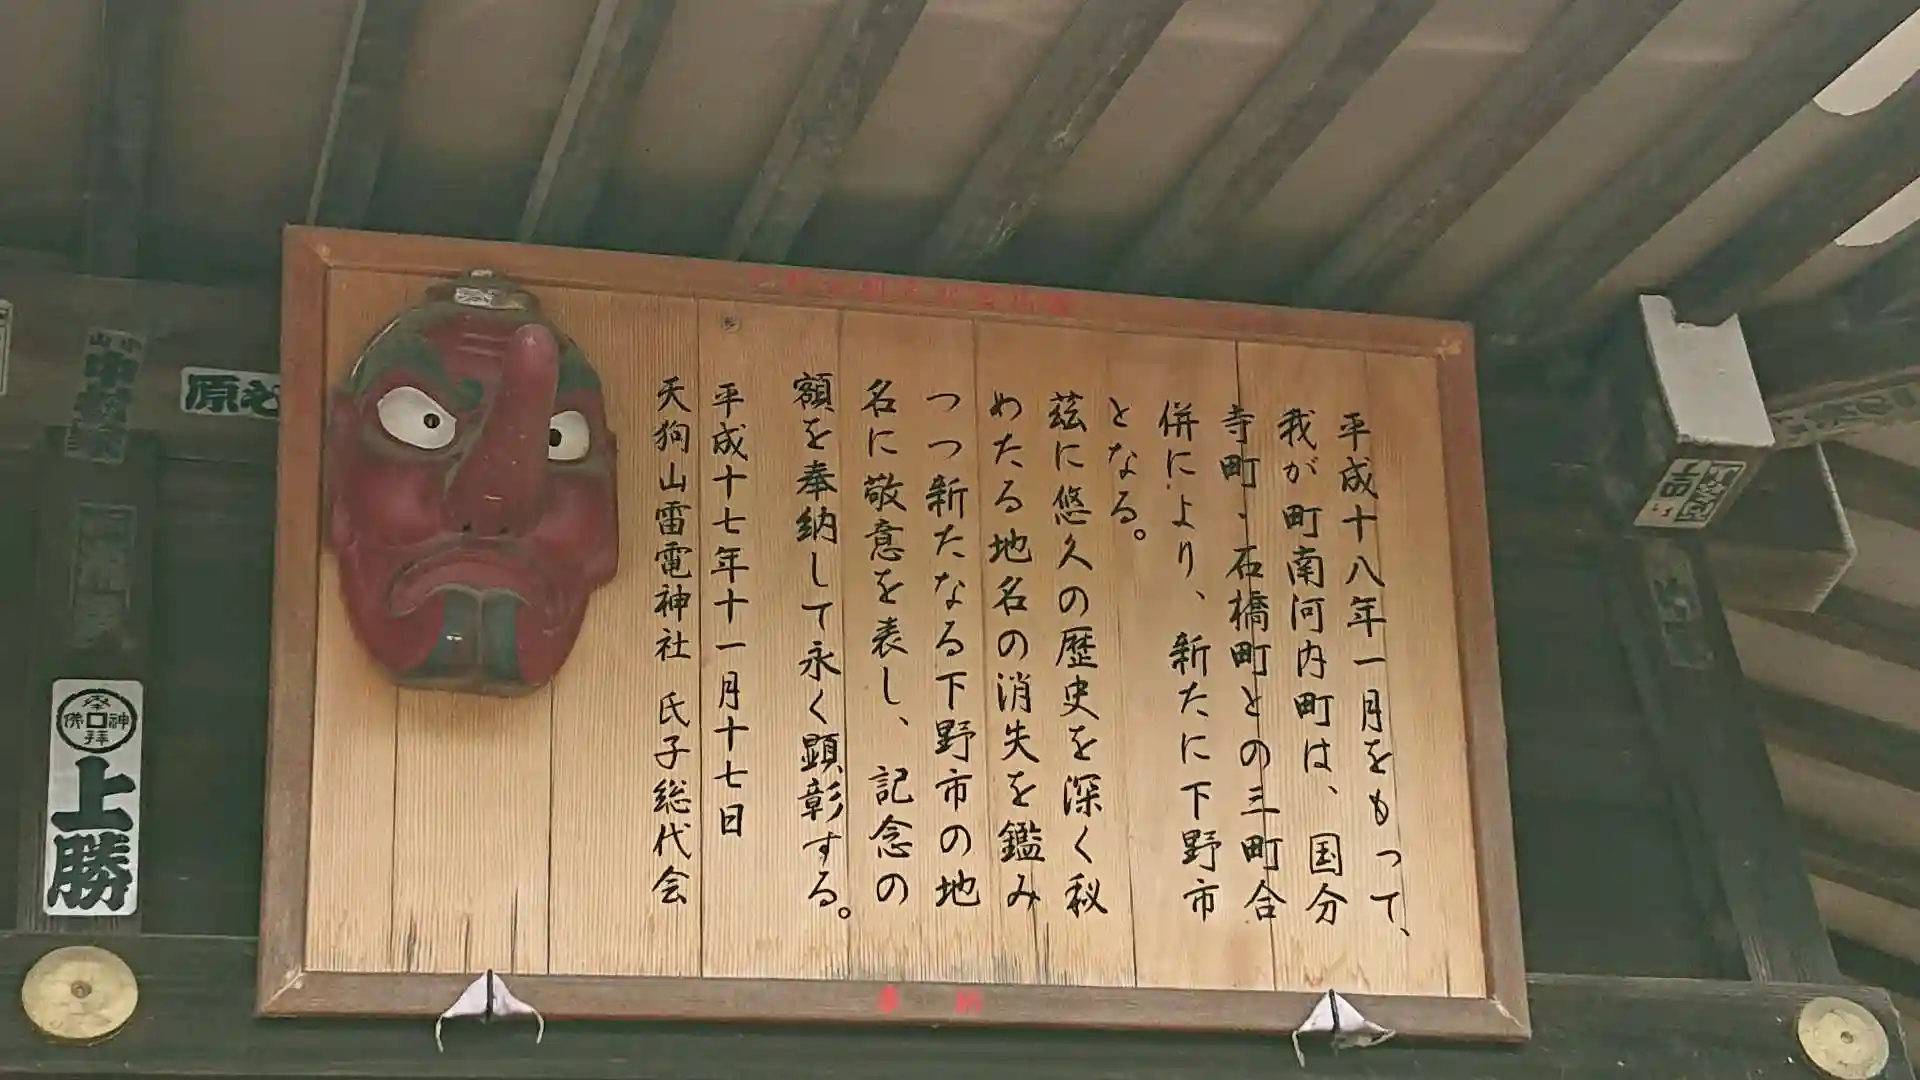 平成十八年一月をもって、
我が町南河内町は、国分
寺町、石橋町との三町合
併により、新たに下野市
となる。
茲に悠久の歴史を深く秘
めたる地名の消失を鑑み
つつ新たなる下野市の地
名に敬意を表し、記念の
額を奉納して永く顕彰する。
平成十七年十一月十七日
天狗山雷電神社 氏子総代会
奉納
上勝